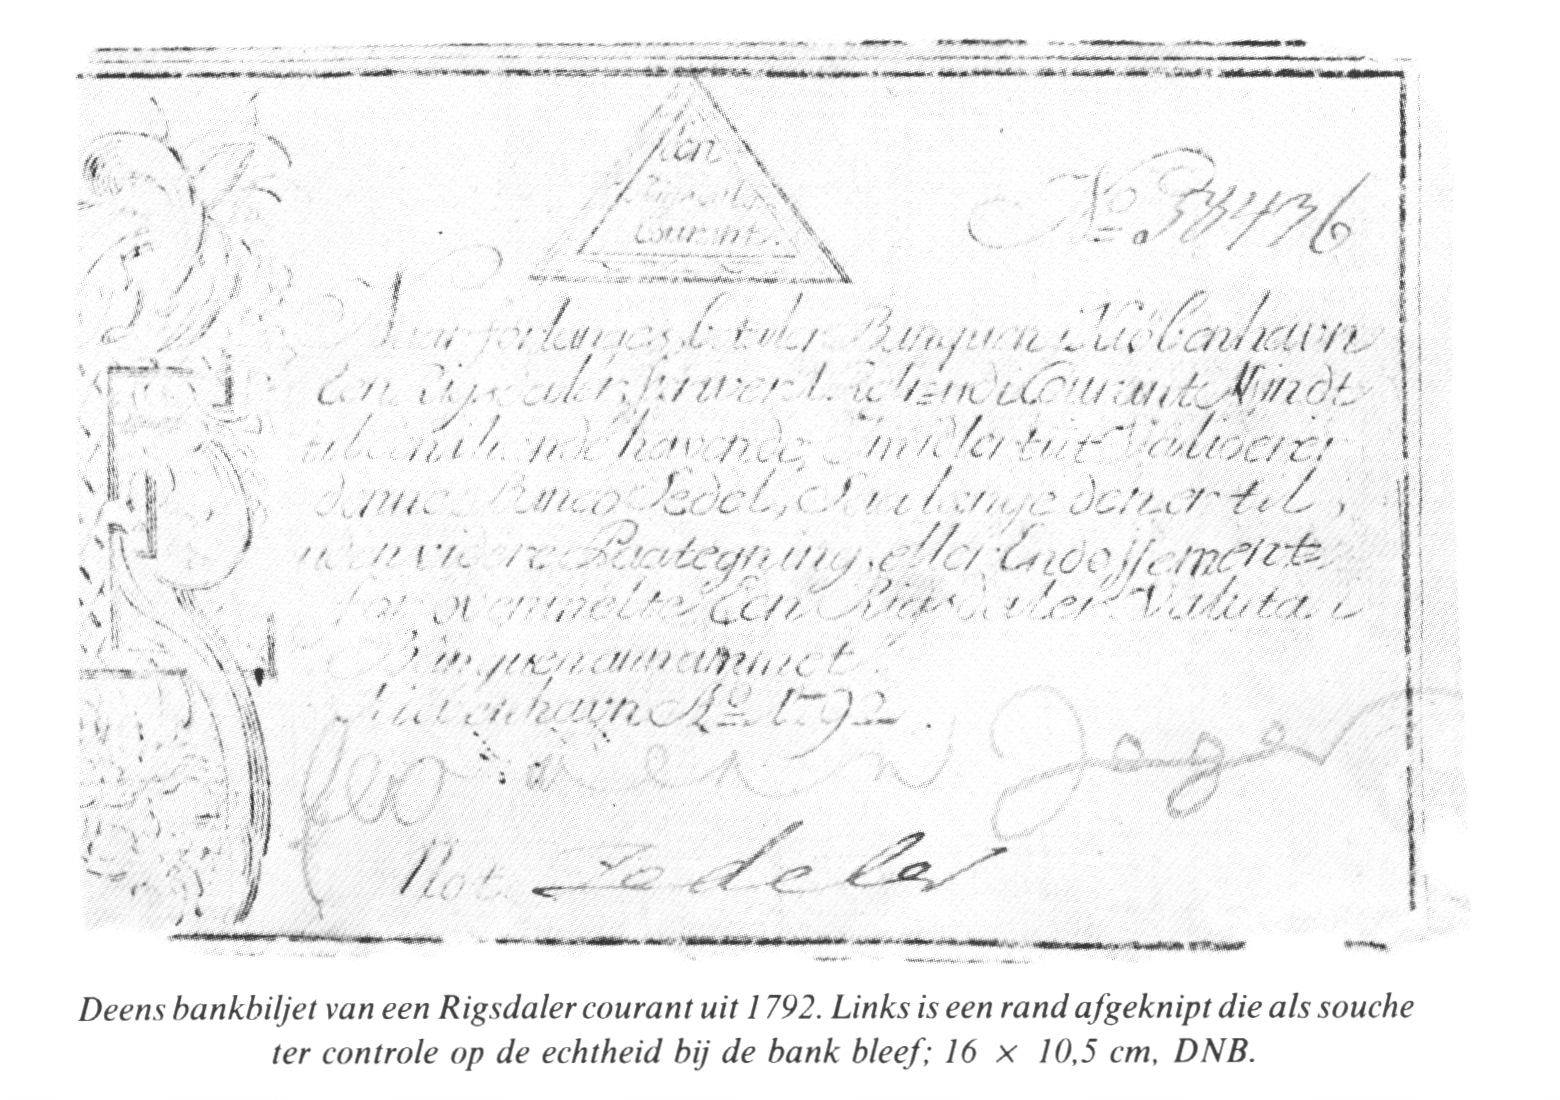 Een
Rigsdaler
Courant.
No. 38436
Naar forlanges, betaler Banquen i Kiøbenhavn
Een Rigsdaler
Courant Mindt
til ihændehavende, Imidlertiit Validerer
denne Banco Sedel, Saa længe den er til,
uden videre Paategning eller Endossement
for ovenmelte Een Rigsdaler Valuta i
Banquen annammet.
Kiøbenhavn Ao. 1792.
Not.
Deens bankbiljet van een Rigsdaler courant uit 1792. Links is een rand afgeknipt die als souche
ter controle op de echtheid bij de bank bleef; 16 × 10,5 cm, DNB.